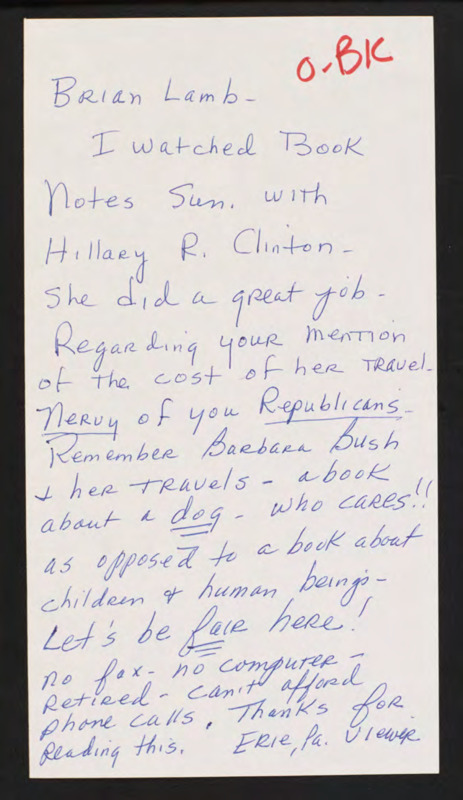 O-BK
Brian Lamb -
I watched Book
Notes Sun. with
Hillary R. Clinton -
She did a great job -
Regarding your mention
of the cost of her travel -
Nervy of you Republicans -
Remember Barbara Bush
& her travels - a book
about a dog - who cares!!
as opposed to a book about
children & human beings -
Let's be fair here!
no fax - no computer -
Retired - can't afford
phone calls. Thanks for
reading this. Erie, Pa. Viewer